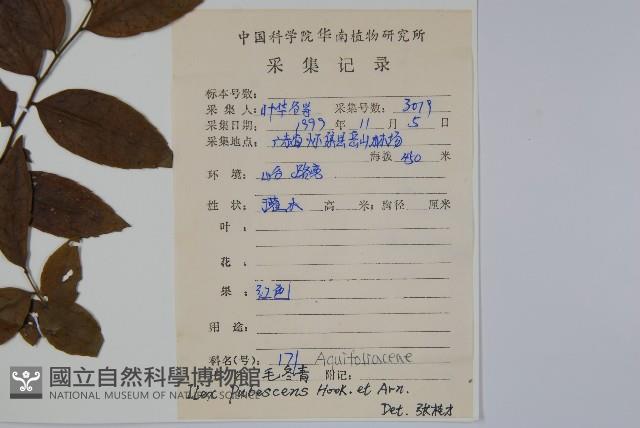 中国科学院华南植物研究所
采集记录
标本号数：
采集人：叶华谷等 采集号数：3079
采集日期：1999年11月5日
采集地点：广东省怀集县 山林场
海拔 450 米
环境：山谷 路旁
性状：灌木 高 米；胸径 厘米
叶：
花：
果：红色
用途：
科名(号)：171 Aquifoliaceae
毛冬青 附记：
Ilex pubescens Hook. et Arn.
Det. 张桂才
國立自然科學博物館
NATIONAL MUSEUM OF NATURAL SCIENCE